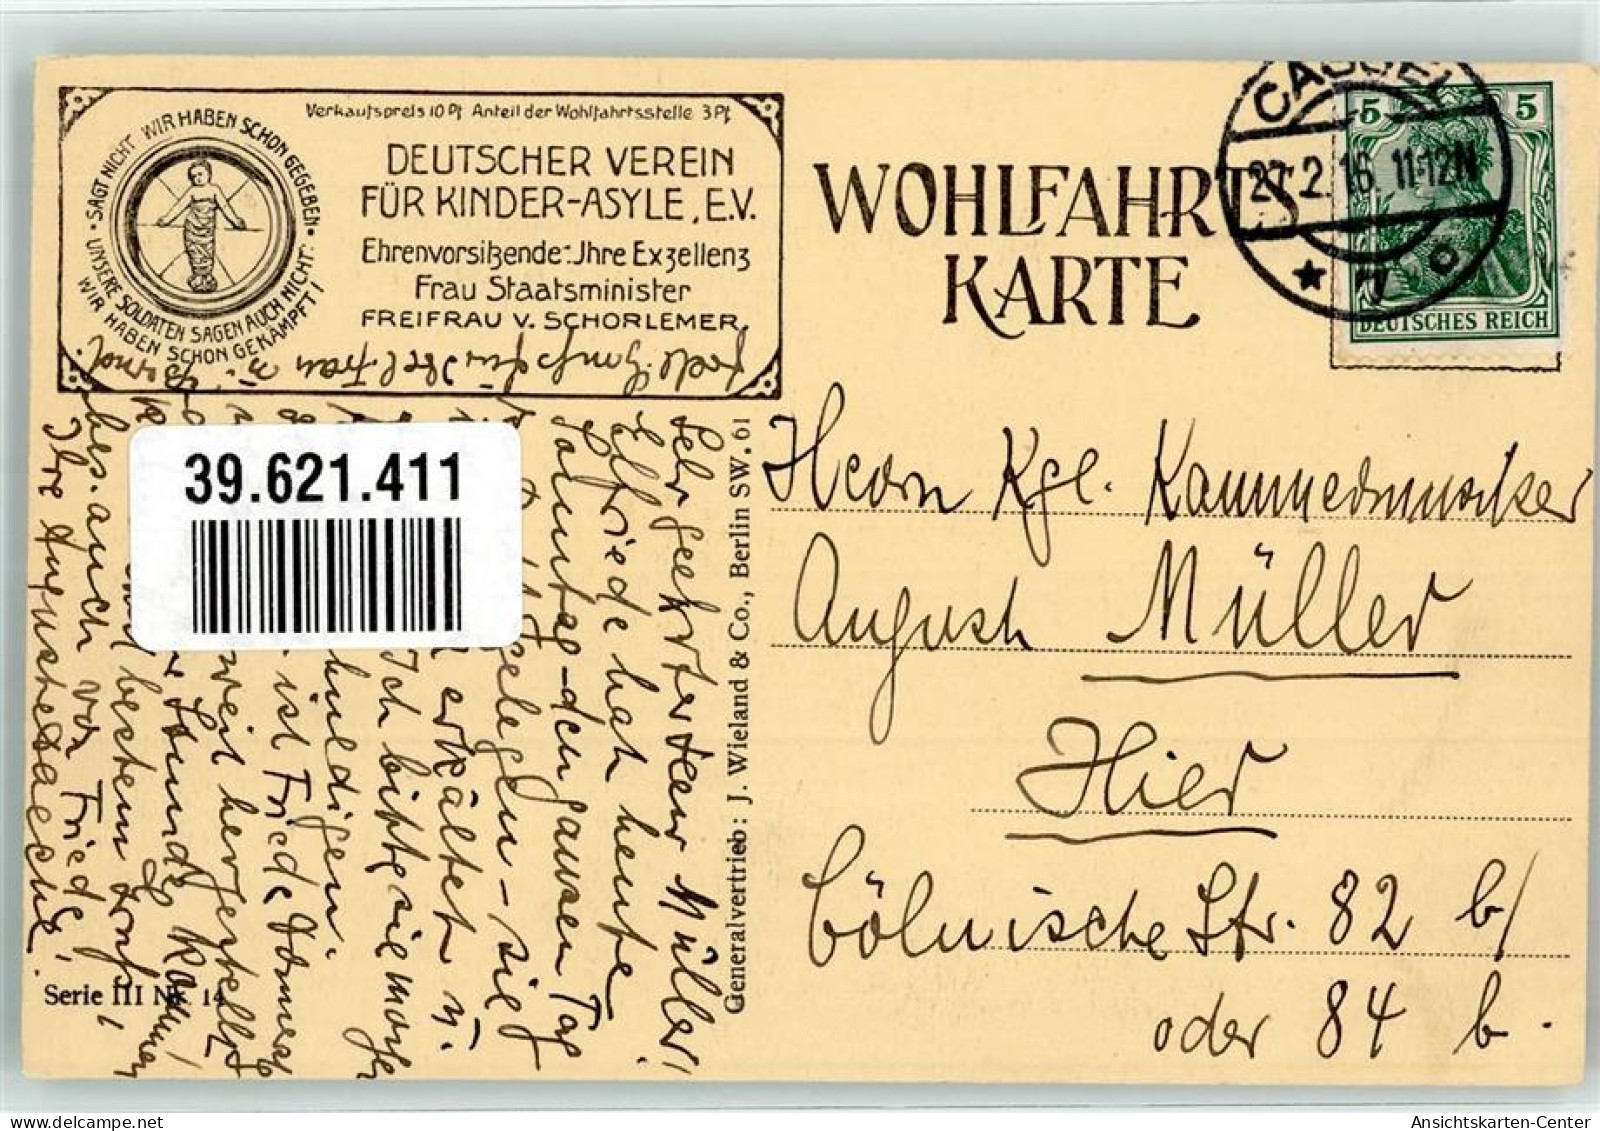 Verkaufspreis 10 Pf Anteil der Wohlfahrtsstelle 3 Pf
SAGT NICHT WIR HABEN SCHON GEGEBEN
UNSERE SOLDATEN SAGEN AUCH NICHT:
WIR HABEN SCHON GEKÄMPFT!
DEUTSCHER VEREIN
FÜR KINDER-ASYLE, E.V.
Ehrenvorsitzende: Ihre Exzellenz
Frau Staatsminister
FREIFRAU V. SCHORLEMER
WOHLFAHRTS
KARTE
CASSEL
27.2.16. 11-12N
* 7 c
5 5
DEUTSCHES REICH
Herrn Kgl. Kammermusiker
August Müller
Hier
Cölnische Str. 82 b/
oder 84 b.
Generalvertrieb: J. Wieland & Co., Berlin SW. 61
Sehr geehrter Herr Müller!
Elfriede hat heute
Sonntag - den ganzen Tag
gelegen - sie
erkältet u.
Ich bitte sie morgen
huldigen.
ist Friede
weil hergestellt
Stunde kommen!
bestem Gruß,
bes. auch von Friedel!
Ihre
39.621.411
Serie III Nr. 14
Ansichtskarten-Center